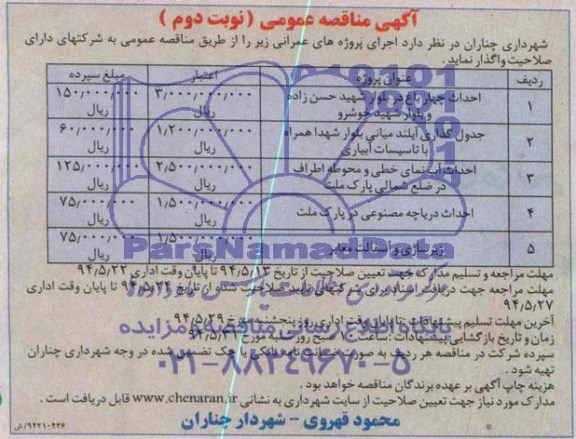 آگهی مناقصه عمومی ( نوبت دوم )
شهرداری چناران در نظر دارد اجرای پروژه های عمرانی زیر را از طریق مناقصه عمومی به شرکتهای دارای
صلاحیت واگذار نماید.
ردیف عنوان پروژه اعتبار مبلغ سپرده
۱ احداث چهار باغ در بلوار شهید حسن زاده و بلوار شهید خوشرو ۳٫۰۰۰٫۰۰۰٫۰۰۰ ریال ۱۵۰٫۰۰۰٫۰۰۰ ریال
۲ جدول گذاری آیلند میانی بلوار شهدا همراه با تاسیسات آبیاری ۱٫۲۰۰٫۰۰۰٫۰۰۰ ریال ۶۰٫۰۰۰٫۰۰۰ ریال
۳ احداث آب نمای خطی و محوطه اطراف در ضلع شمالی پارک ملت ۲٫۵۰۰٫۰۰۰٫۰۰۰ ریال ۱۲۵٫۰۰۰٫۰۰۰ ریال
۴ احداث دریاچه مصنوعی در پارک ملت ۱٫۵۰۰٫۰۰۰٫۰۰۰ ریال ۷۵٫۰۰۰٫۰۰۰ ریال
۵ زیرسازی و آسفالت معابر ۱٫۵۰۰٫۰۰۰٫۰۰۰ ریال ۷۵٫۰۰۰٫۰۰۰ ریال
ParsNamadData
مهلت مراجعه و تسلیم مدارک جهت تعیین صلاحیت از تاریخ ۹۴٫۵٫۱۳ تا پایان وقت اداری ۹۴٫۵٫۲۲
مهلت مراجعه جهت دریافت اسناد برای شرکتهای تایید صلاحیت شده از تاریخ ۹۴٫۵٫۲۴ تا پایان وقت اداری
۹۴٫۵٫۲۷
آخرین مهلت تسلیم پیشنهادات : تا پایان وقت اداری روز پنجشنبه مورخ ۹۴٫۵٫۲۹
پایگاه اطلاع رسانی مناقصه و مزایده
زمان و تاریخ بازگشایی پیشنهادات : ساعت ۱۰ صبح روز شنبه مورخ ۹۴٫۵٫۳۱
۰۲۱-۸۸۳۴۹۶۷۰-۵
سپرده شرکت در مناقصه هر ردیف به صورت ضمانت نامه بانکی یا چک تضمین شده در وجه شهرداری چناران
تهیه شود .
هزینه چاپ آگهی بر عهده برندگان مناقصه خواهد بود .
مدارک مورد نیاز جهت تعیین صلاحیت از سایت شهرداری به نشانی www.chenaran.ir قابل دریافت است .
محمود قهروی - شهردار چناران
۹۴۲۱۰۴۳۶/ش